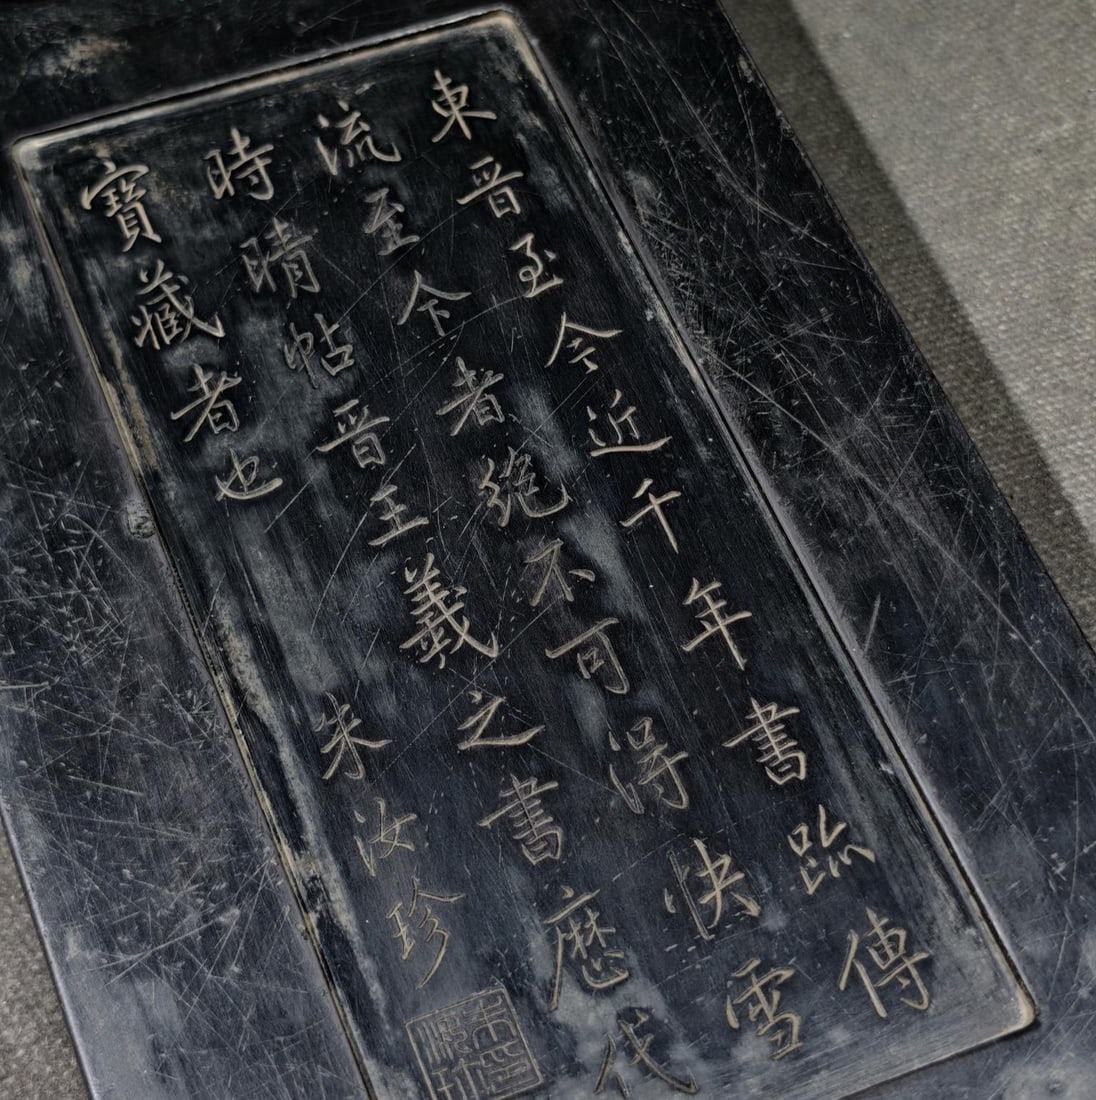 東晋至今近千年書跡傳
流至今者絶不可得快雪
時晴帖晋王羲之書歷代
寶藏者也
朱汝珍
朱汝珍印